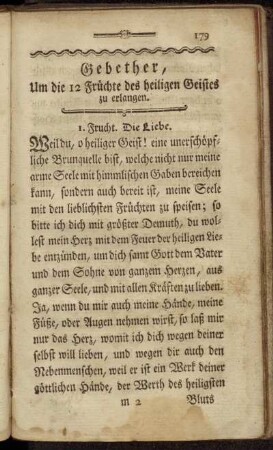 179
Gebether,
Um die 12 Früchte des heiligen Geistes
zu erlangen.
1. Frucht. Die Liebe.
Weil du, o heiliger Geist! eine unerschöpf-
liche Brunquelle bist, welche nicht nur meine
arme Seele mit himmlischen Gaben bereichen
kann, sondern auch bereit ist, meine Seele
mit den lieblichsten Früchten zu speisen; so
bitte ich dich mit größter Demuth, du wol-
lest mein Herz mit dem Feuer der heiligen Lie-
be entzünden, um dich samt Gott dem Vater
und dem Sohne von ganzem Herzen, aus
ganzer Seele, und mit allen Kräften zu lieben.
Ja, wenn du mir auch meine Hände, meine
Füße, oder Augen nehmen wirst, so laß mir
nur das Herz, womit ich dich wegen deiner
selbst will lieben, und wegen dir auch den
Nebenmenschen, weil er ist ein Werk deiner
göttlichen Hände, der Werth des heiligsten
m 2 Bluts